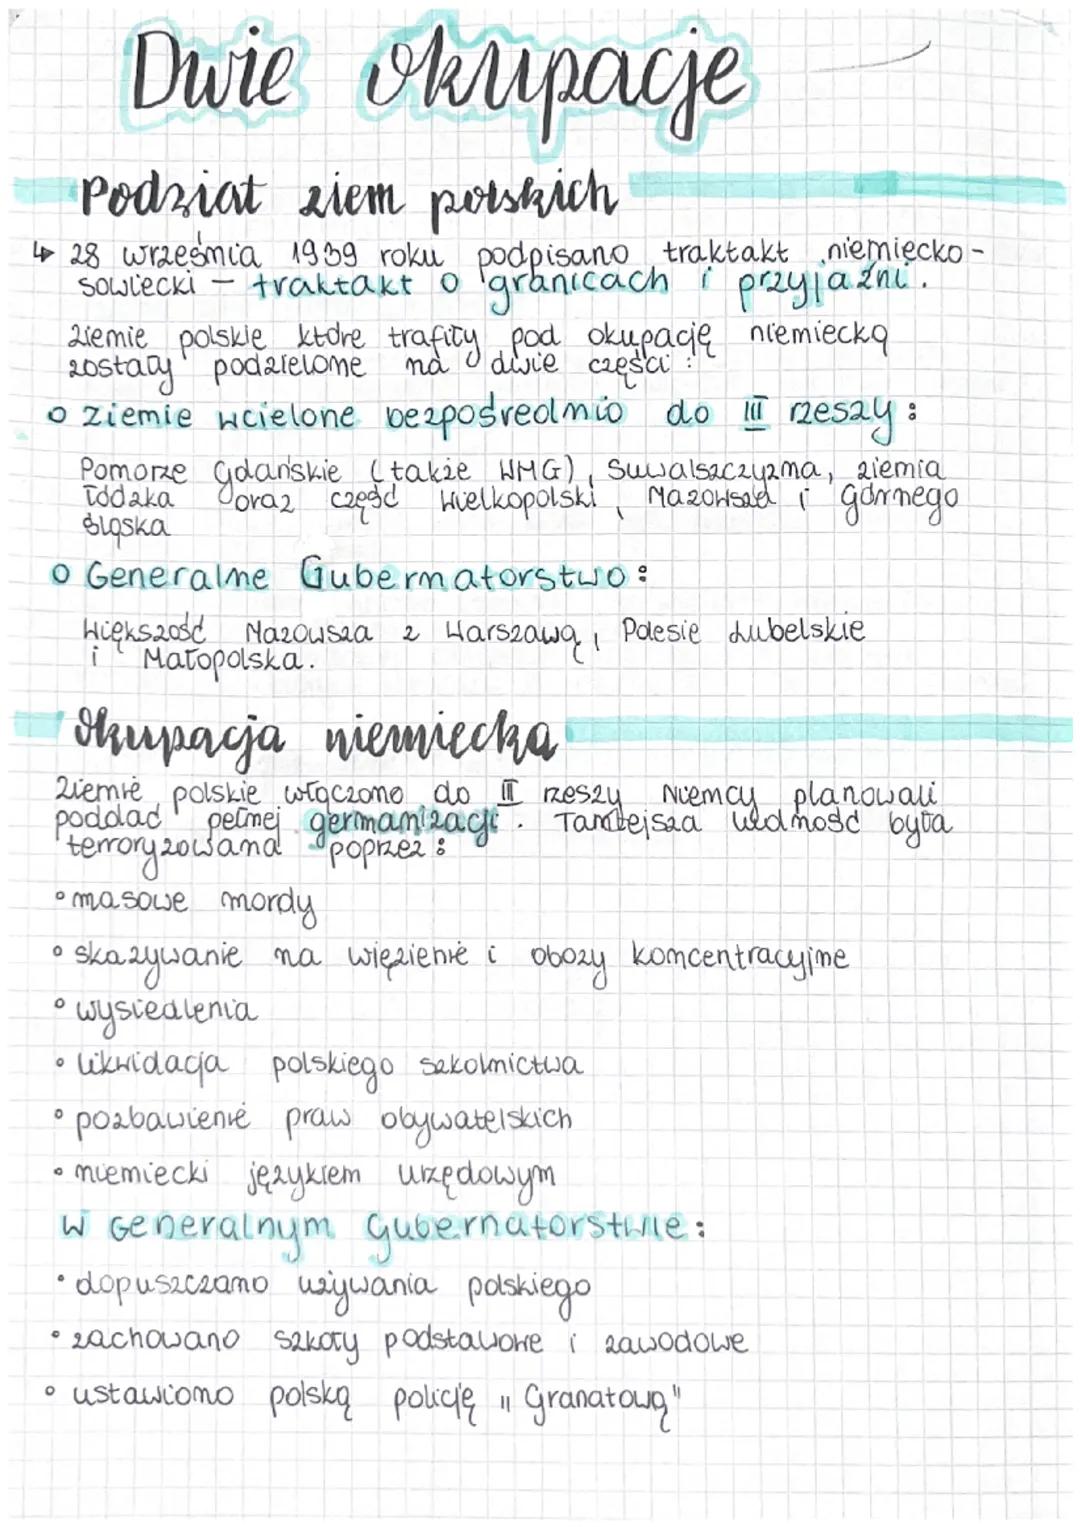 Dwie okupacje
Podział ziem polskich
↳ 28 września 1939 roku podpisano traktakt niemiecko-
sowiecki – traktakt o granicach i przyjaźni.
Ziemie polskie które trafiły pod okupację niemiecką
zostały podzielone na dwie części:
o ziemie wcielone bezpośrednio do III rzeszy:
Pomorze Gdańskie (także WMG), Suwalszczyzna, ziemia
łódzka oraz część Wielkopolski, Mazowsza i Górnego
śląska
o Generalne Gubernatorstwo:
Większość Mazowsza z Warszawą, Polesie Lubelskie
i Małopolska.
Okupacja niemiecka
Ziemie polskie włączono do III rzeszy Niemcy planowali
poddać pełnej germanizacji. Tamtejsza ludność była
terroryzowana poprzez:
• masowe mordy
• skazywanie na więzienie i obozy koncentracyjne
• wysiedlenia
• likwidacja polskiego szkolnictwa
• pozbawienie praw obywatelskich
• niemiecki językiem urzędowym
W Generalnym Gubernatorstwie:
• dopuszczano używania polskiego
• zachowano szkoły podstawowe i zawodowe
• ustawiono polską policję „Granatową"